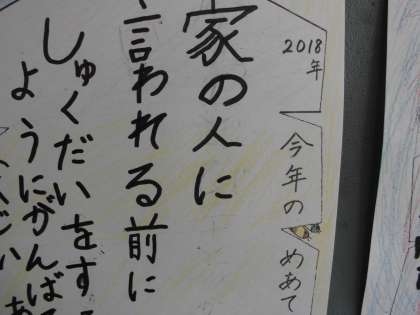 2018年
今年の
めあて
家の人に
言われる前に
しゅくだいをす
ようにがんば